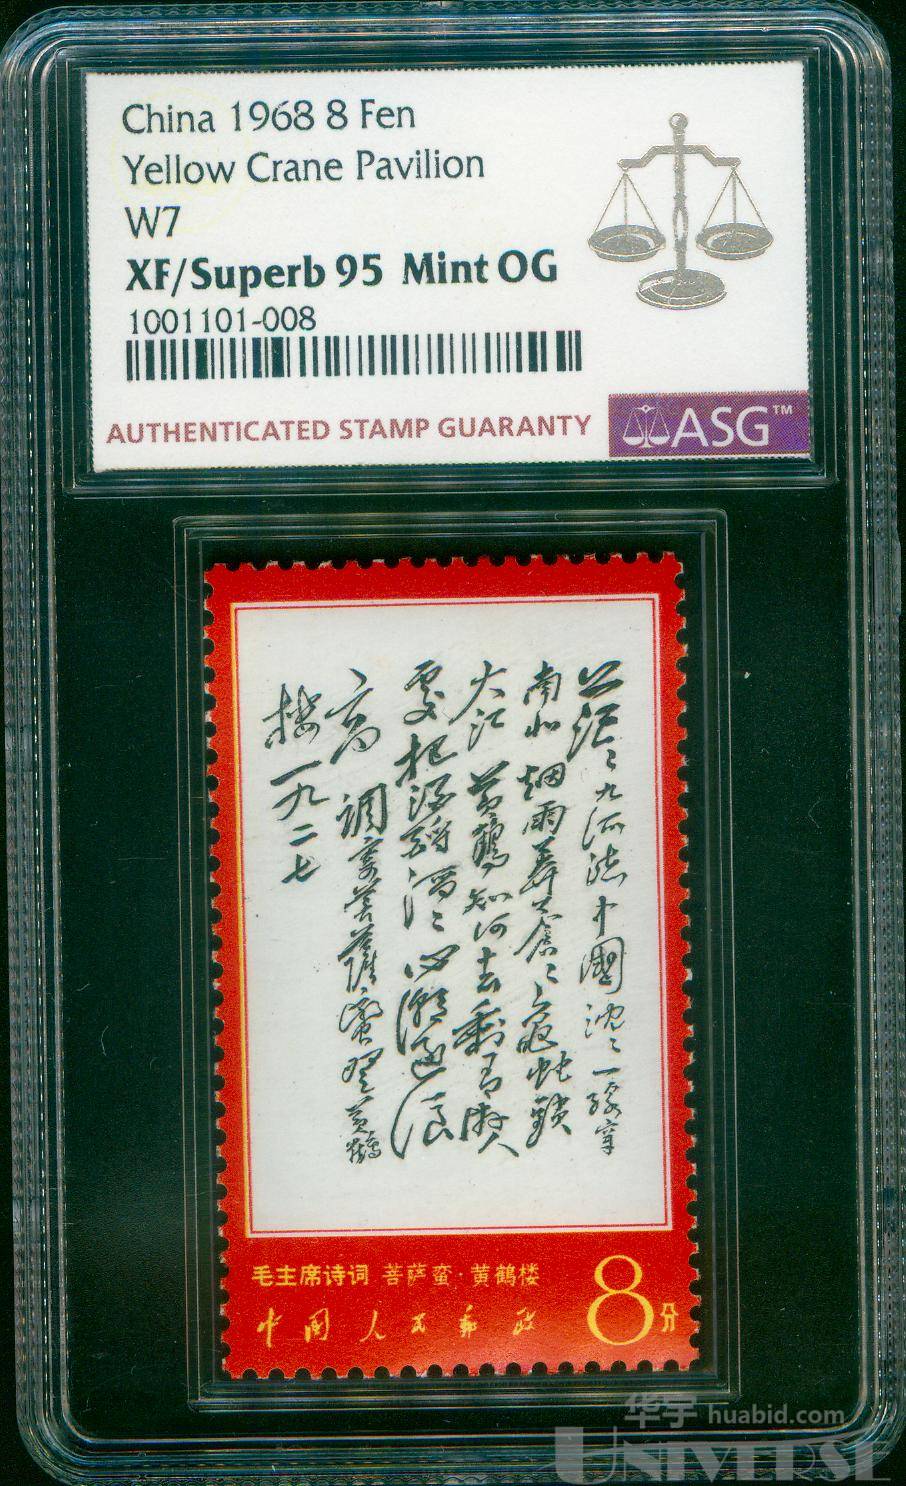 China 1968 8 Fen
Yellow Crane Pavilion
W7
XF/Superb 95 Mint OG
1001101-008
AUTHENTICATED STAMP GUARANTY
ASG™
茫〻九派流中國沈〻一線穿
南北烟雨莽蒼〻龜蛇鎖
大江 黄鶴知何去剩有遊人
處把酒酹滔〻心潮逐浪
高 調寄菩薩蠻登黄鶴
樓一九二七
毛主席诗词 菩萨蛮·黄鹤楼
中国人民邮政
8分
华宇 huabid.com
UNIVERSE